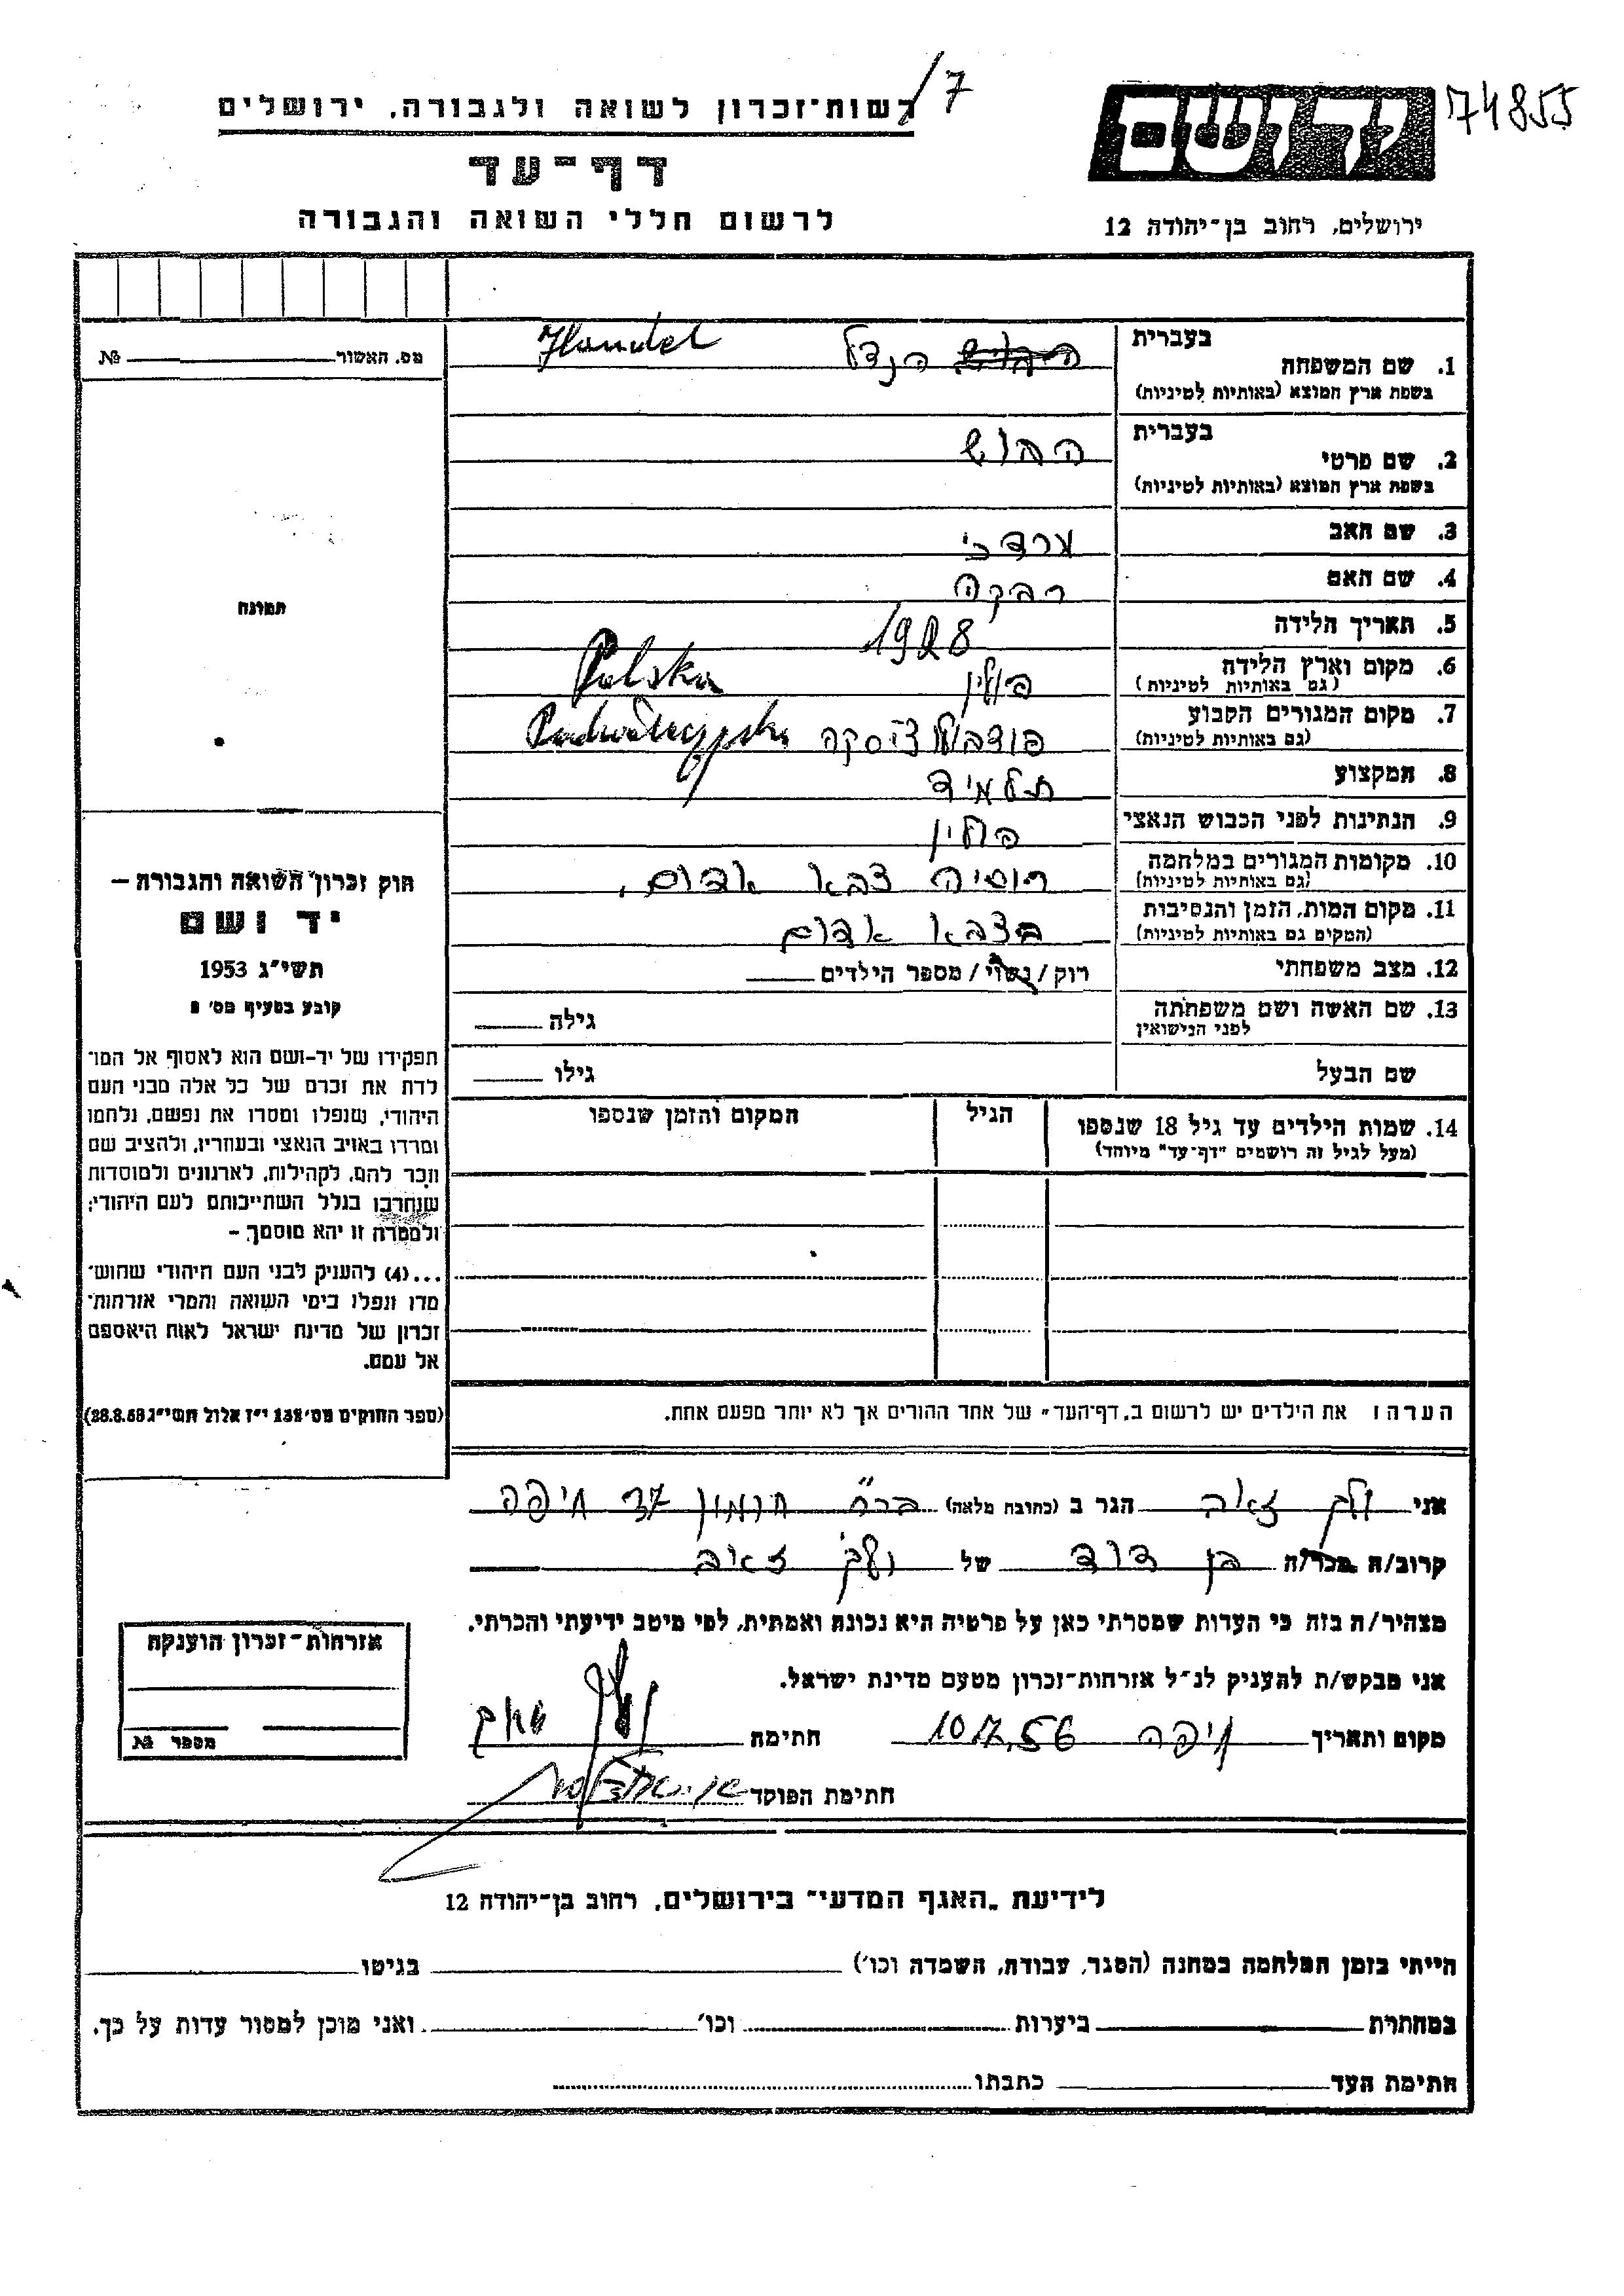 74855
/7
יד ושם
רשות־זכרון לשואה ולגבורה, ירושלים
דף־עד
לרשום חללי השואה והגבורה
ירושלים, רחוב בן־יהודה 12
מס. האשור № 
בעברית
1. שם המשפחה הנדל Handel
בשפת ארץ המוצא (באותיות לטיניות)
בעברית
2. שם פרטי
בשפת ארץ המוצא (באותיות לטיניות)
3. שם האב מרדכי
4. שם האם רבקה
5. תאריך הלידה 1928
6. מקום וארץ הלידה פולין Polska
(גם באותיות לטיניות)
7. מקום המגורים הקבוע
(גם באותיות לטיניות)
8. המקצוע תלמיד
9. הנתינות לפני הכבוש הנאצי פולין
10. מקומות המגורים במלחמה רוסיה צבא אדום,
(גם באותיות לטיניות)
11. מקום המות, הזמן והנסיבות בצבא אדום
(המקום גם באותיות לטיניות)
12. מצב משפחתי רוק / נשוי / מספר הילדים
13. שם האשה ושם משפחתה גילה
לפני הנישואין
שם הבעל גילו
14. שמות הילדים עד גיל 18 שנספו הגיל המקום והזמן שנספו
(מעל לגיל זה רושמים "דף־עד" מיוחד)
הערה: את הילדים יש לרשום ב„דף־העד" של אחד ההורים אך לא יותר מפעם אחת.
תמונה
חוק זכרון השואה והגבורה –
יד ושם
תשי"ג 1953
קובע בסעיף מס'
תפקידו של יד־ושם הוא לאסוף אל המו־
לדת את זכרם של כל אלה מבני העם
היהודי, שנפלו ומסרו את נפשם, נלחמו
ומרדו באויב הנאצי ובעוזריו, ולהציב שם
וזכר להם, לקהילות, לארגונים ולמוסדות
שנחרבו בגלל השתייכותם לעם היהודי;
ולמטרה זו יהא מוסמך –
...(4) להעניק לבני העם היהודי שהוש־
מדו ונפלו בימי השואה והמרי אזרחות־
זכרון של מדינת ישראל לאות היאספם
אל עמם.
(ספר החוקים מס' 132 י"ז אלול תשי"ג 28.8.53)
אני זאב הגר ב (כתובת מלאה) חרמון 37 חיפה
קרוב/ה מכר/ה בן דוד של זאב
מצהיר/ה בזה כי העדות שמסרתי כאן על פרטיה היא נכונה ואמתית, לפי מיטב ידיעתי והכרתי.
אני מבקש/ת להעניק לנ"ל אזרחות־זכרון מטעם מדינת ישראל.
מקום ותאריך חיפה חתימה
חתימת הפוקד
אזרחות־זכרון הוענקה
מספר №
לידיעת „האגף המדעי" בירושלים, רחוב בן־יהודה 12
הייתי בזמן המלחמה במחנה (הסגר, עבודה, השמדה וכו') בגיטו
במחתרת ביערות וכו' ואני מוכן למסור עדות על כך.
חתימת העד כתבתו